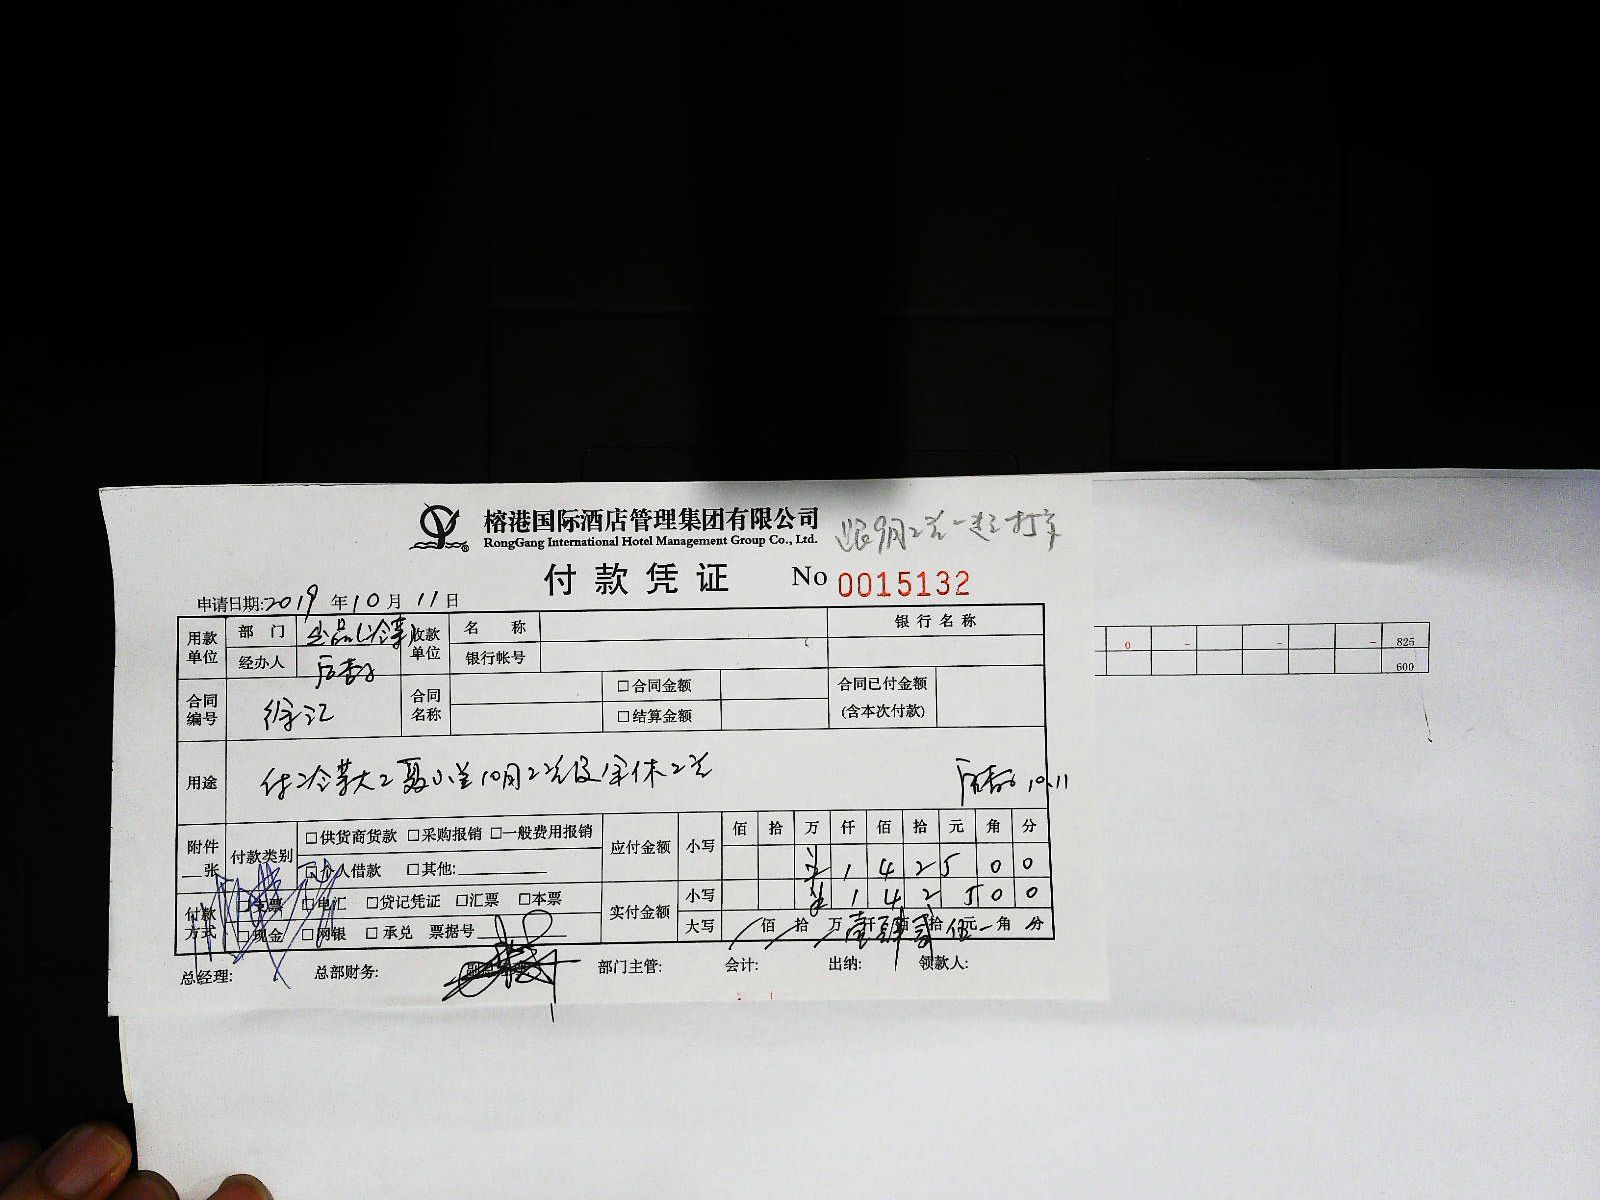 榕港国际酒店管理集团有限公司
RongGang International Hotel Management Group Co., Ltd.
跟9月2 一起打
付款凭证 No 0015132
申请日期:2019年10月11日
用款单位 部门 出品(冷菜) 收款单位 名称 银行名称
经办人 银行帐号
0 - - - 825
600
合同编号 徐汇 合同名称 □合同金额 合同已付金额
□结算金额 (含本次付款)
用途 付冷菜大工夏小 10月2 及 休2 10.11
附件 张 付款类别 □供货商货款 □采购报销 □一般费用报销 应付金额 小写 佰 拾 万 仟 佰 拾 元 角 分
人借款 □其他: ¥ 1 4 2 5 0 0
付款方式 □支票 □电汇 □贷记凭证 □汇票 □本票 实付金额 小写 ¥ 1 4 2 5 0 0
□现金 □网银 □承兑 票据号 大写 佰 拾 万 壹仟 肆佰 贰拾 伍元 角 分
总经理: 总部财务: 部门主管: 会计: 出纳: 领款人: